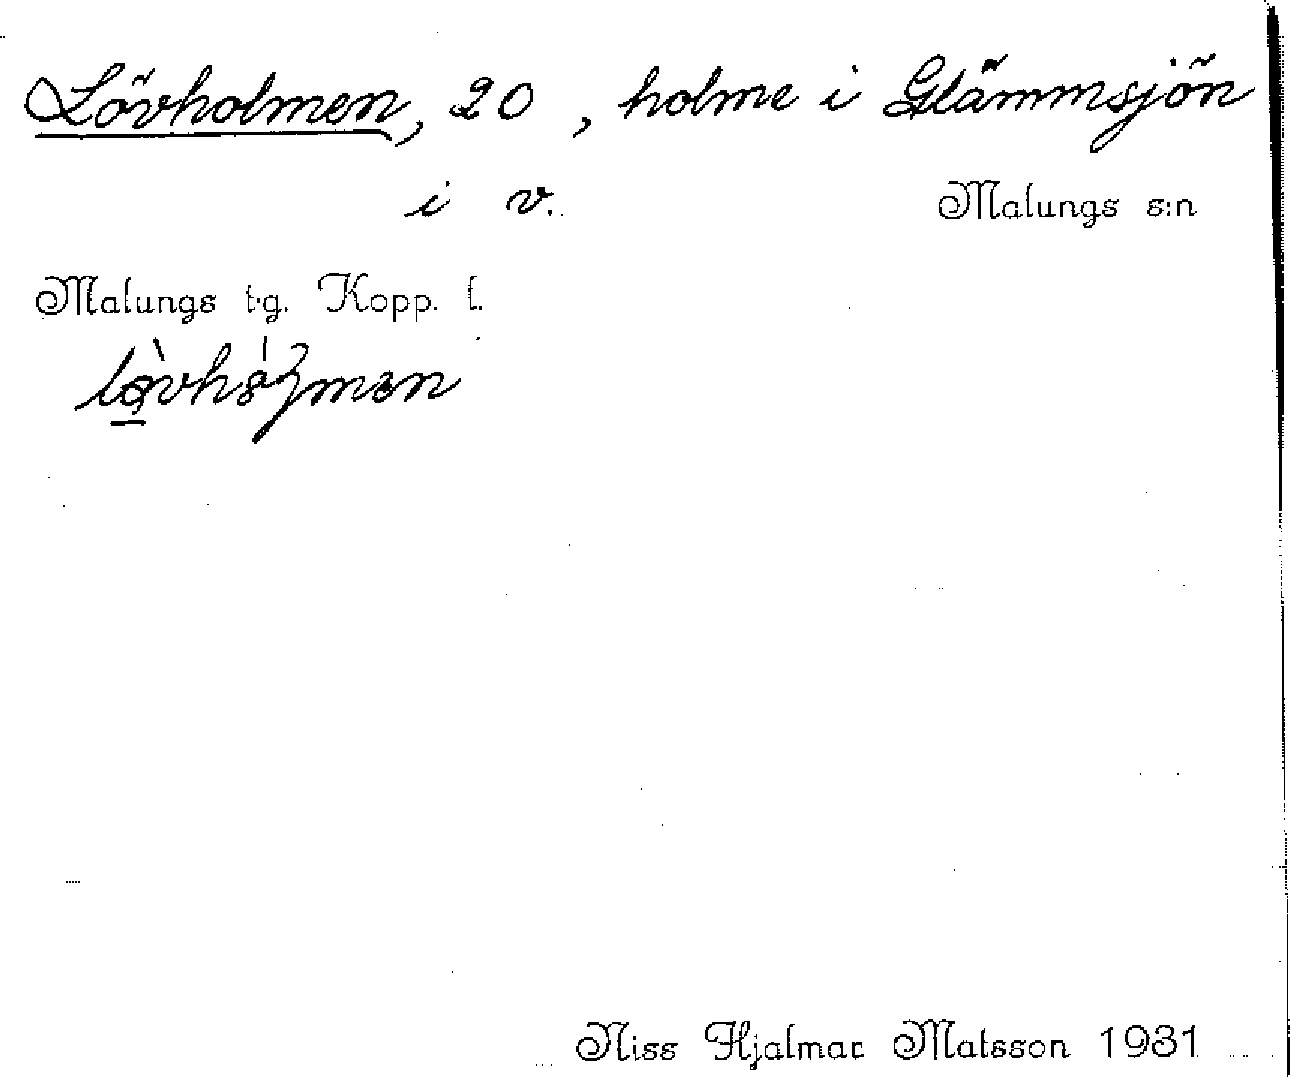 Lövholmen, 20, holme i Glämmsjön
i v. Malungs s:n
Malungs t.g. Kopp. l.
Niss Hjalmar Matsson 1981